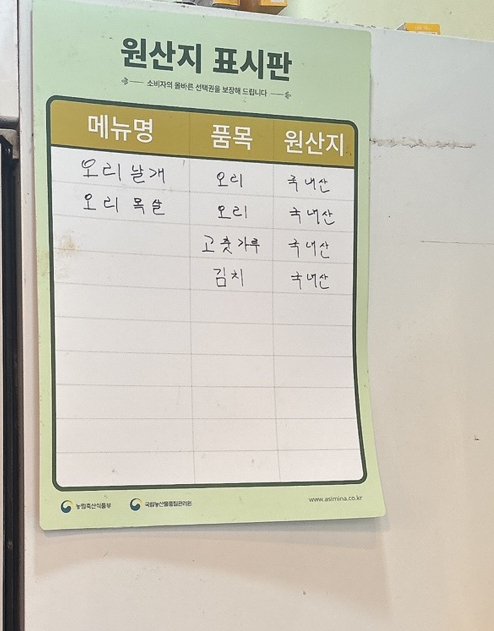 원산지 표시판
소비자의 올바른 선택권을 보장해 드립니다
메뉴명 품목 원산지
오리 날개 오리 국내산
오리 목살 오리 국내산
고춧가루 국내산
김치 국내산
농림축산식품부 국립농산물품질관리원 www.asimina.co.kr